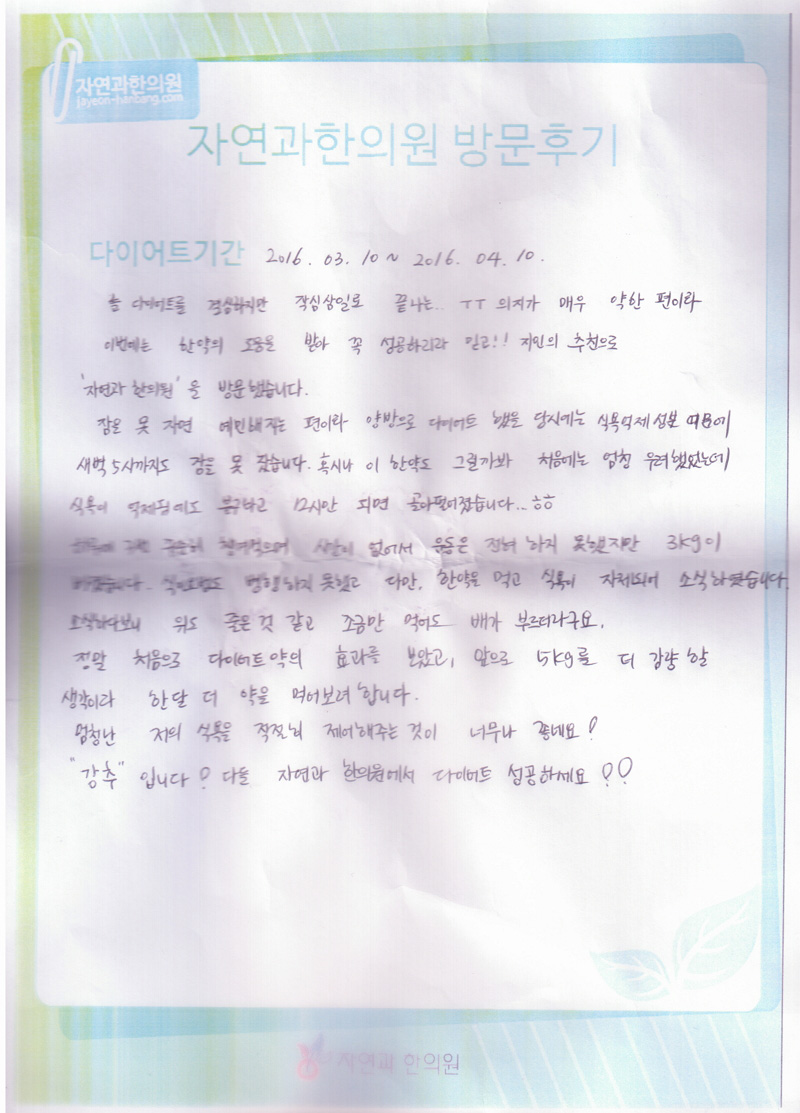 자연과한의원
jayeon-hanbang.com
자연과한의원 방문후기
다이어트기간 2016. 03. 10 ~ 2016. 04. 10.
늘 다이어트를 결심하지만 작심삼일로 끝나는.. ㅜㅜ 의지가 매우 약한 편이라
이번에는 한약의 도움을 받아 꼭 성공하리라 믿고!! 지인의 추천으로
'자연과 한의원'을 방문했습니다.
잠을 못 자면 예민해지는 편이라 양방으로 다이어트 했을 당시에는 식욕억제 성분 때문에
새벽 5시까지도 잠을 못 잤습니다. 혹시나 이 한약도 그럴까봐 처음에는 엄청 우려했었는데
식욕이 억제됨에도 불구하고 12시만 되면 골아떨어졌습니다... ㅎㅎ
꾸준히 챙겨먹으며 시간이 없어서 운동은 전혀 하지 못했지만 3kg이
빠졌습니다. 식이요법도 병행하지 못했고 다만, 한약을 먹고 식욕이 자제되어 소식하였습니다.
소식하다보니 위도 줄은것 같고 조금만 먹어도 배가 부르더라구요.
정말 처음으로 다이어트약의 효과를 보았고, 앞으로 5kg를 더 감량할
생각이라 한달 더 약을 먹어보려 합니다.
엄청난 저의 식욕을 적절히 제어해주는 것이 너무나 좋네요!
"강추" 입니다! 다들 자연과 한의원에서 다이어트 성공하세요!!
자연과 한의원